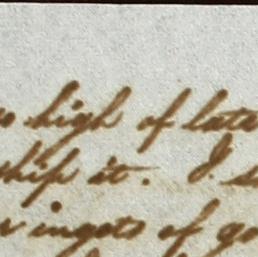 so high of late
ship it. I s
r ingots of go